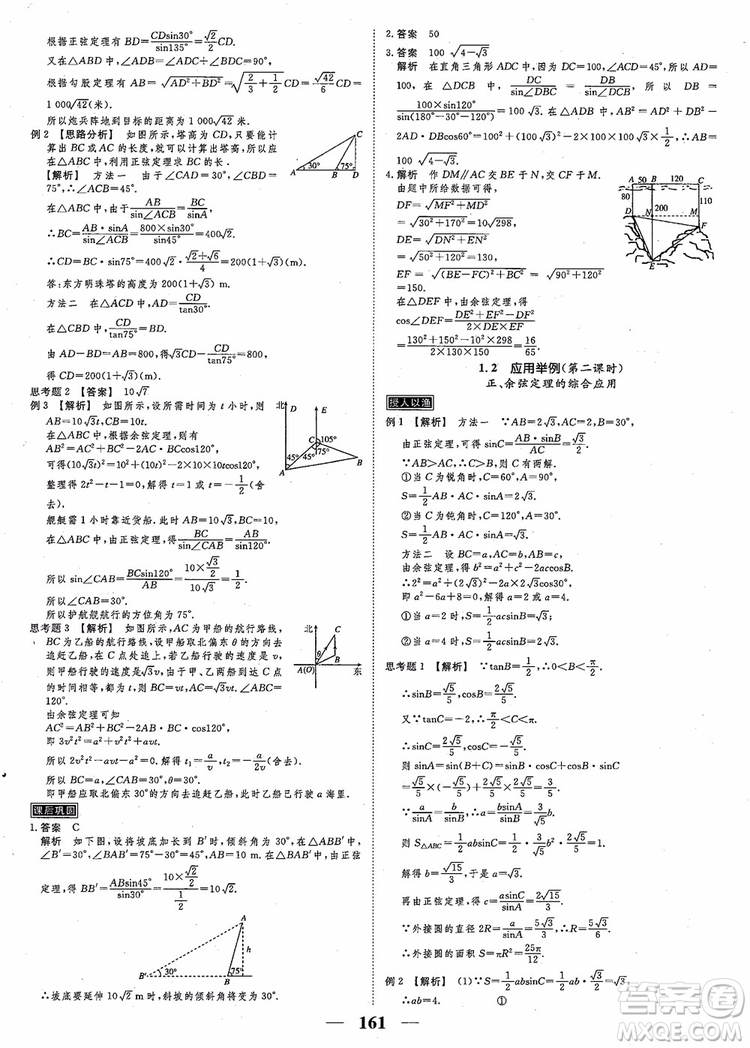 根据正弦定理有 BD=CDsin30°/sin135°=√2/2 CD.
又在△ABD中,∠ADB=∠ADC+∠BDC=90°,
根据勾股定理有 AB=√(AD²+BD²)=√(2/3+1/2) CD=√42/6 CD=
1 000√42(米).
所以炮兵阵地到目标的距离为1 000√42米.
例2 【思路分析】 如图所示,塔高为CD,只要能计
算出BC或AC的长度,就可以计算出塔高.所
以在△ABC中,利用正弦定理求长.
【解析】 方法一 由于∠CAD=30°,∠CBD=
75°,∴∠ACB=45°.
在△ABC中,由于AB/sin∠ACB=BC/sinA,
∴BC=AB·sinA/sin∠ACB=800×sin30°/sin45°=400√2(m).
∴CD=BC·sin75°=400√2·(√2+√6)/4=200(1+√3)(m).
答:东方明珠塔的高度为200(1+√3)m.
方法二 在△ACD中,AD=CD/tan30°.
在△BCD中,由于CD/tan75°=BD.
由AD-BD=AB=800,得√3CD-CD/tan75°=800.
所以CD=200(1+√3)(m).
思考题2 【答案】 10√7
例3 【解析】 如图所示,设所需时间为t小时,则
AB=10√3t,CB=10t.
在△ABC中,根据余弦定理,则有
AB²=AC²+BC²-2AC·BCcos120°,
可得(10√3t)²=10²+(10t)²-2×10×10tcos120°.
整理得2t²-t-1=0,解得t=1或t=-1/2(舍去).
舰艇需1小时靠近货船.此时AB=10√3,BC=10,
在△ABC中,由正弦定理,得BC/sin∠CAB=AB/sin120°.
所以sin∠CAB=BCsin120°/AB=10×√3/2/10√3=1/2.
所以∠CAB=30°.
所以护航舰航行的方位角为75°.
思考题3 【解析】 如图所示,AC为甲船的航行路线,
BC为乙船的航行路线,设甲船取北偏东θ的方向去
追赶乙船,在C点处追上,若乙船行驶的速度是v,
则甲船行驶的速度是√3v,由于甲、乙两船到C点的
时间相等,都为t,则BC=vt,AC=√3vt.∠ABC=
120°.
由余弦定理可知
AC²=AB²+BC²-2AB·BC·cos120°,
即3v²t²=a²+v²t²+avt.
所以2v²t²-avt-a²=0.解得t₁=a/v,t₂=-a/2v(舍去).
所以BC=a,∠CAB=30°,θ=30°.
即甲船应取北偏东30°的方向去追赶乙船,乙船行驶a海里.
课后巩固
1.答案 C
解析 如下图,设将坡底加长到B′时,倾斜角为30°,在△ABB′中,
∠B′=30°,∠BAB′=75°-30°=45°,AB=10 m.在△BAB′中,由正弦
定理,得BB′=ABsin45°/sin30°=10×√2/2/1/2=10√2(m).
∴坡底要延伸10√2m时,斜坡的倾斜角将变为30°.
2.答案 50
3.答案 100√(4-√3)
解析 在直角三角形ADC中,∠DAC=45°,∴CD=AD=
100,在△DCB中,DC/sin∠DBC=DB/sin∠DCB,∴DB=
100×sin120°/sin(180°-30°-120°)=100√3,∴AB²=AD²+DB²-
2AD·DBcos60°=100²+(100√3)²-2×100×100√3×1/2,∴AB=
100√(4-√3).
4.解析 作DM∥AC交BE于N,交CF于M.
由题中所给数据,得
DF=√(MF²+MD²)
=√(30²+170²)=10√298,
DE=√(DN²+EN²)
=√(50²+120²)=130,
EF=√((BE-FC)²+BC²)=√(90²+120²)=
150.
在△DEF中,由余弦定理,得
cos∠DEF=(DE²+EF²-DF²)/(2×DE×EF)
=(130²+150²-10²×298)/(2×130×150)=16/65.
1.2 应用举例(第二课时)
正、余弦定理的综合应用
授人以渔
例1 【解析】 方法一 ∵AB=2√3,AC=2,
由正弦定理,可得sinC=AB·sinB/AC=√3/2.
∵AB>AC,∴∠C有两解.
①当C为锐角时,C=60°,∴A=90°.
S=1/2 AB·AC·sinA=2√3.
②当C为钝角时,C=120°,∴A=30°.
S=1/2 AB·AC·sinA=√3.
方法二 设BC=a,AC=b,AB=c.
由余弦定理,得b²=a²+c²-2accosB.
∴2²=a²+(2√3)²-2·a·2√3·cos30°.
即a²-6a+8=0,解得a=2或4.
①当a=2时,S=1/2 acsinB=√3;
②当a=4时,S=1/2 acsinB=2√3.
思考题1 【解析】 ∵tanB=1/2,∴0<B<π/2.
∴sinB=√5/5,cosB=2√5/5.
又∵tanC=-2,∴π/2<C<π.
∴sinC=2√5/5,cosC=-√5/5.
则sinA=sin(B+C)=sinBcosC+cosBsinC=
√5/5×(-√5/5)+2√5/5×2√5/5=3/5.
∵a/sinA=b/sinB,∴a=3√5/5 b.
则S△ABC=1/2 absinC=1/2×3√5/5 b²×2√5/5=1.
解得b=√15/3,则a=√3.
再由正弦定理,得c=asinC/sinA=2√15/3.
∵外接圆的直径2R=a/sinA=5√3/3,∴R=5√3/6.
∴外接圆的面积S=πR²=25π/12.
例2 【解析】 (1)∵S=1/2 absinC=1/2 ab·√3/2=√3,
∴ab=4. ①
161
答案圈